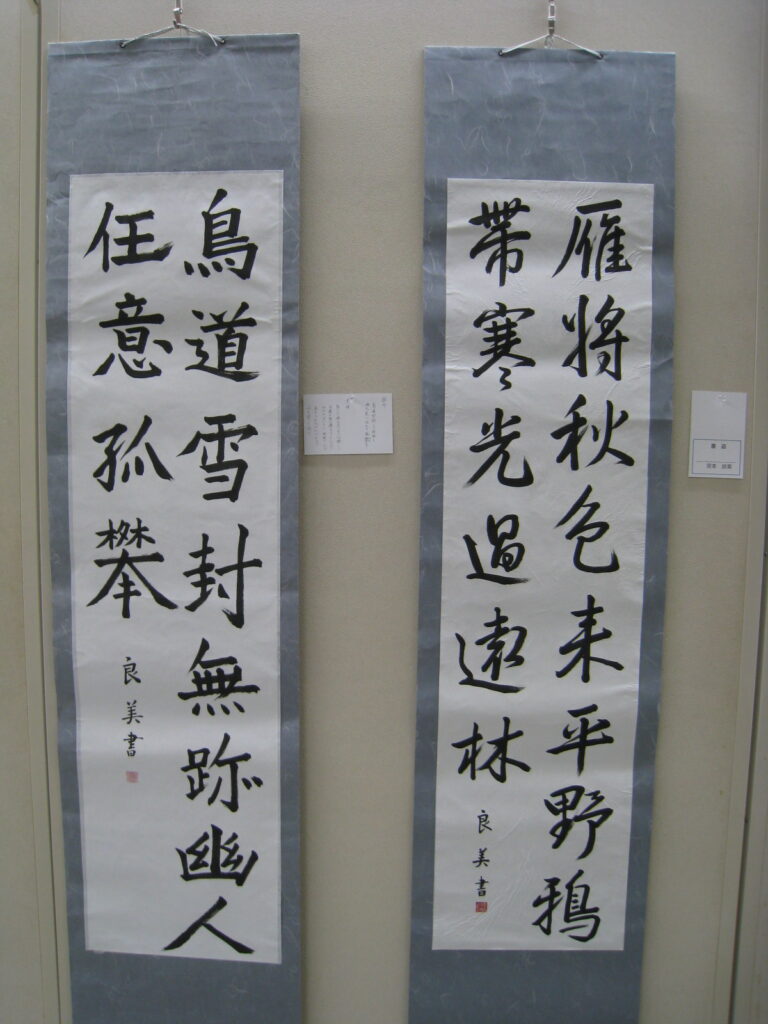 雁將秋色来平野鴉
帶寒光過遠林
良美書
鳥道雪封無跡幽人
任意孤攀
良美書